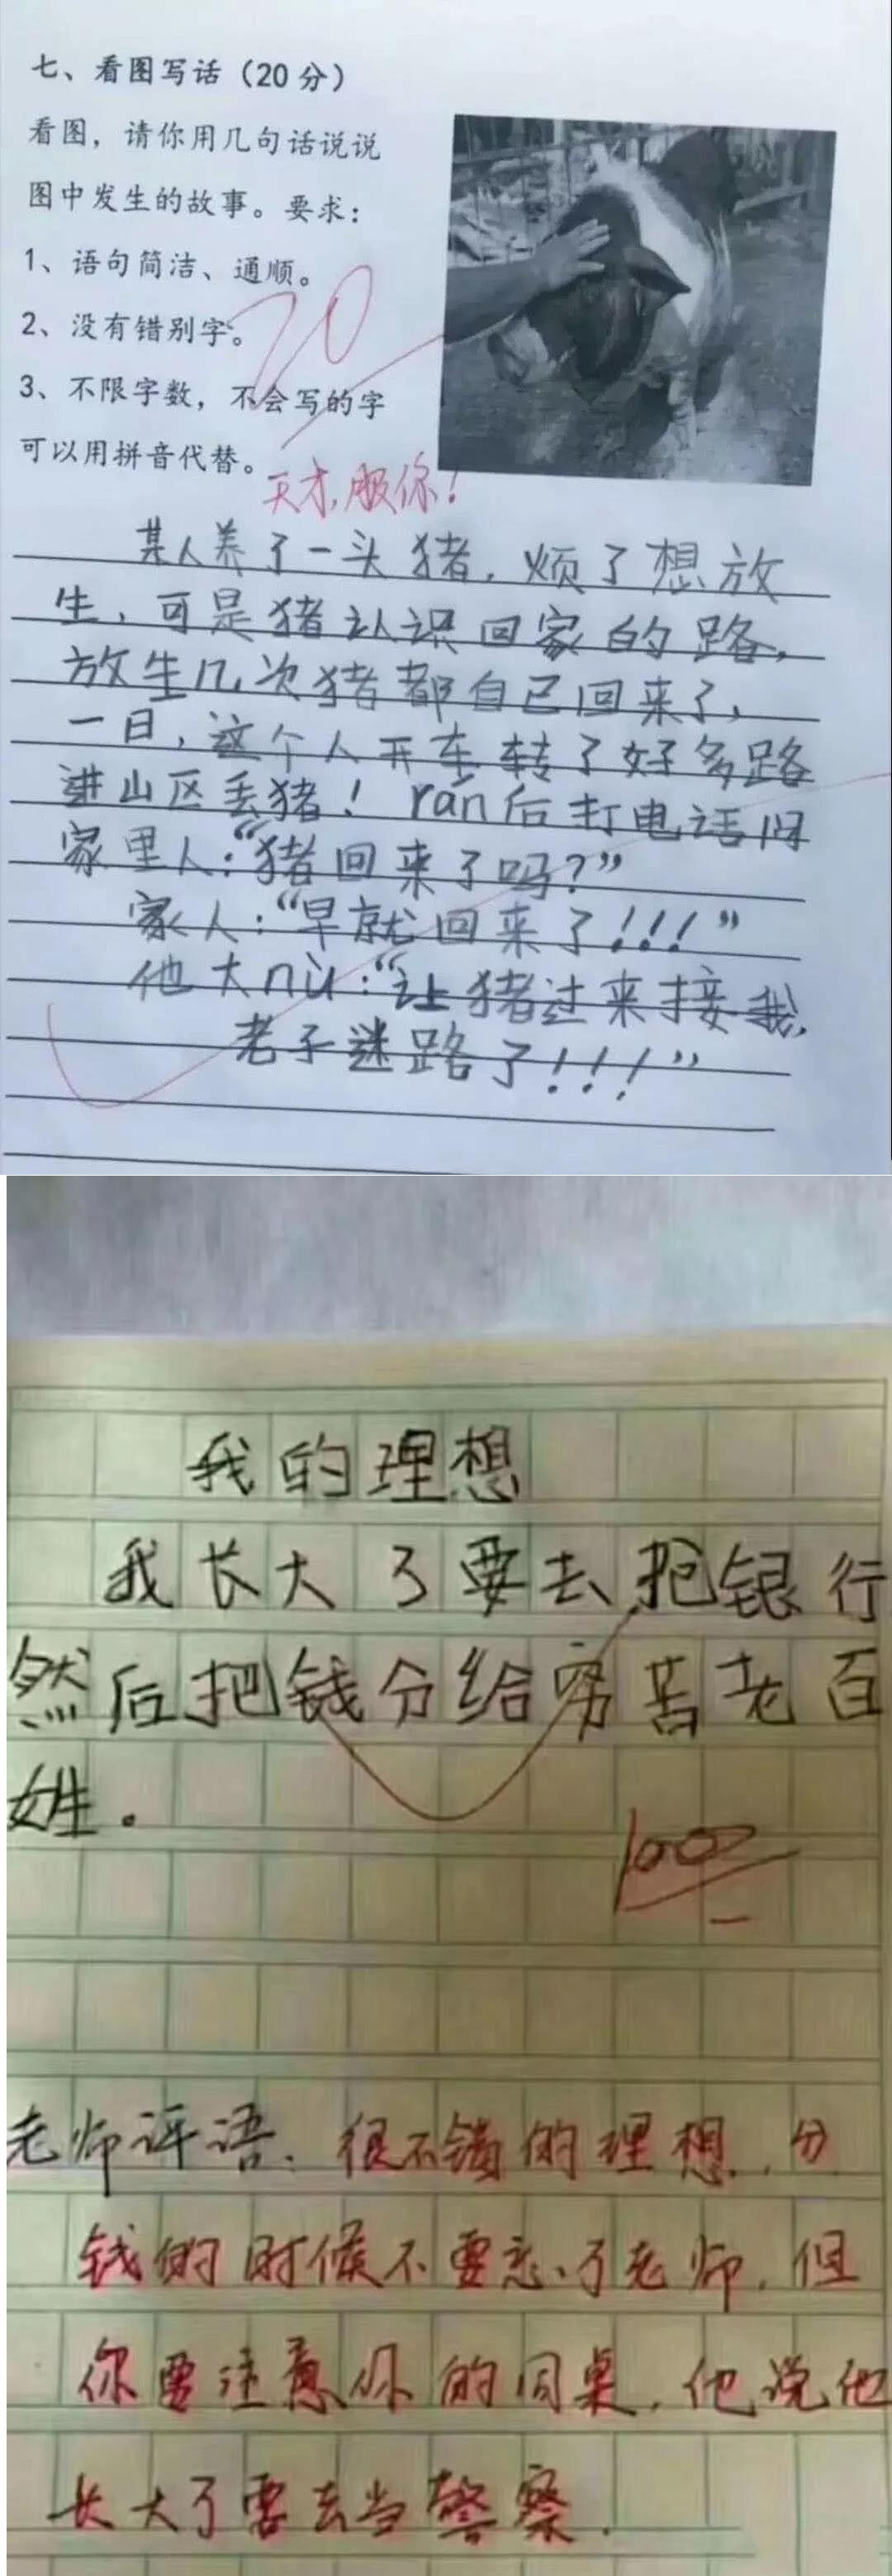 七、看图写话（20 分）
看图，请你用几句话说说
图中发生的故事。要求：
1、语句简洁、通顺。
2、没有错别字。
20
3、不限字数，不会写的字
可以用拼音代替。
天才，服你！
某人养了一头猪，烦了想放
生，可是猪认识回家的路，
放生几次猪都自己回来了，
一日，这个人开车转了好多路
进山区丢猪！rán后打电话问
家里人：“猪回来了吗？”
家人：“早就回来了！！！”
他大nù：“让猪过来接我，
老子迷路了！！！”
我的理想
我长大了要去抢银行
然后把钱分给穷苦老百
姓。
100
老师评语：很不错的理想，分
钱的时候不要忘了老师，但
你要注意你的同桌，他说他
长大了要去当警察.